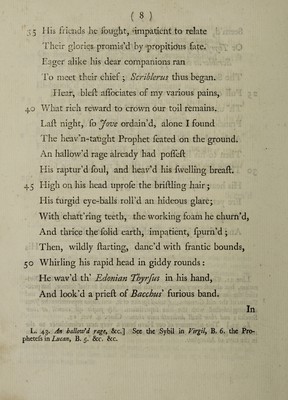 ( 8 )
35 His friends he ſought, impatient to relate
Their glories promis'd by propitious fate.
Eager alike his dear companions ran
To meet their chief; Scriblerus thus began.
Hear, bleſt aſſociates of my various pains,
40 What rich reward to crown our toil remains.
Laſt night, ſo Jove ordain'd, alone I found
The heav'n-taught Prophet ſeated on the ground.
An hallow'd rage already had poſſeſt
His raptur'd ſoul, and heav'd his ſwelling breaſt.
45 High on his head uproſe the briſtling hair;
His turgid eye-balls roll'd an hideous glare;
With chatt'ring teeth, the working foam he churn'd,
And thrice the ſolid earth, impatient, ſpurn'd;
Then, wildly ſtarting, danc'd with frantic bounds,
50 Whirling his rapid head in giddy rounds:
He wav'd th' Edonian Thyrſus in his hand,
And look'd a prieſt of Bacchus' furious band.
In
L. 43. An hallow'd rage, &c.] See the Sybil in Virgil, B. 6. the Pro-
pheteſs in Lucan, B. 5. &c. &c.